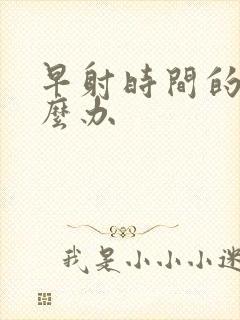 早射時間的
麼办
我是小小小迷